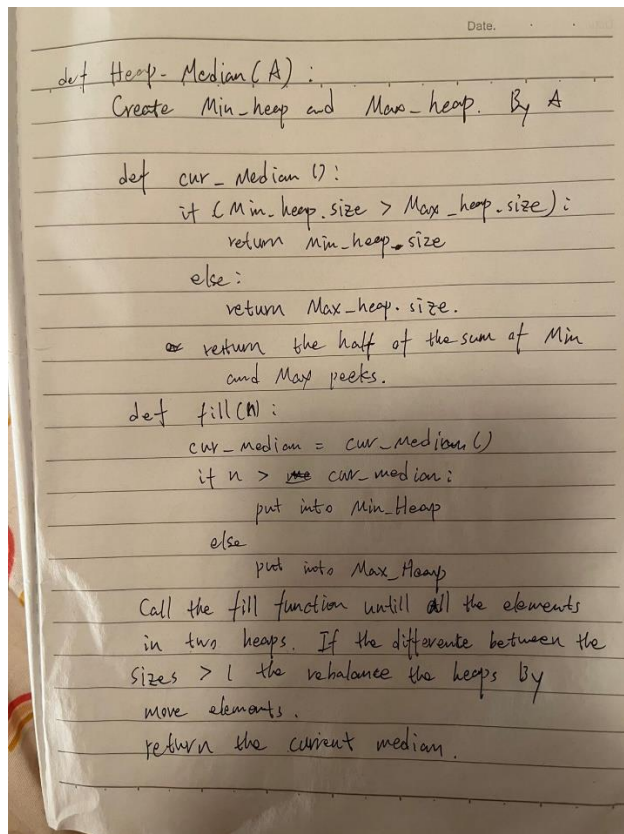 Date.
def Heap-Median(A):
Create Min_heap and Max_heap. By A
def cur_Median():
if (Min_heap.size > Max_heap.size):
return Min_heap.size
else:
return Max_heap.size.
return the half of the sum of Min
and Max peeks.
def fill(n):
cur_median = cur_Median()
if n > cur_median:
put into Min_Heap
else
put into Max_Heap
Call the fill function untill all the elements
in two heaps. If the differente between the
sizes > 1 the rebalance the heaps By
move elements.
return the current median.